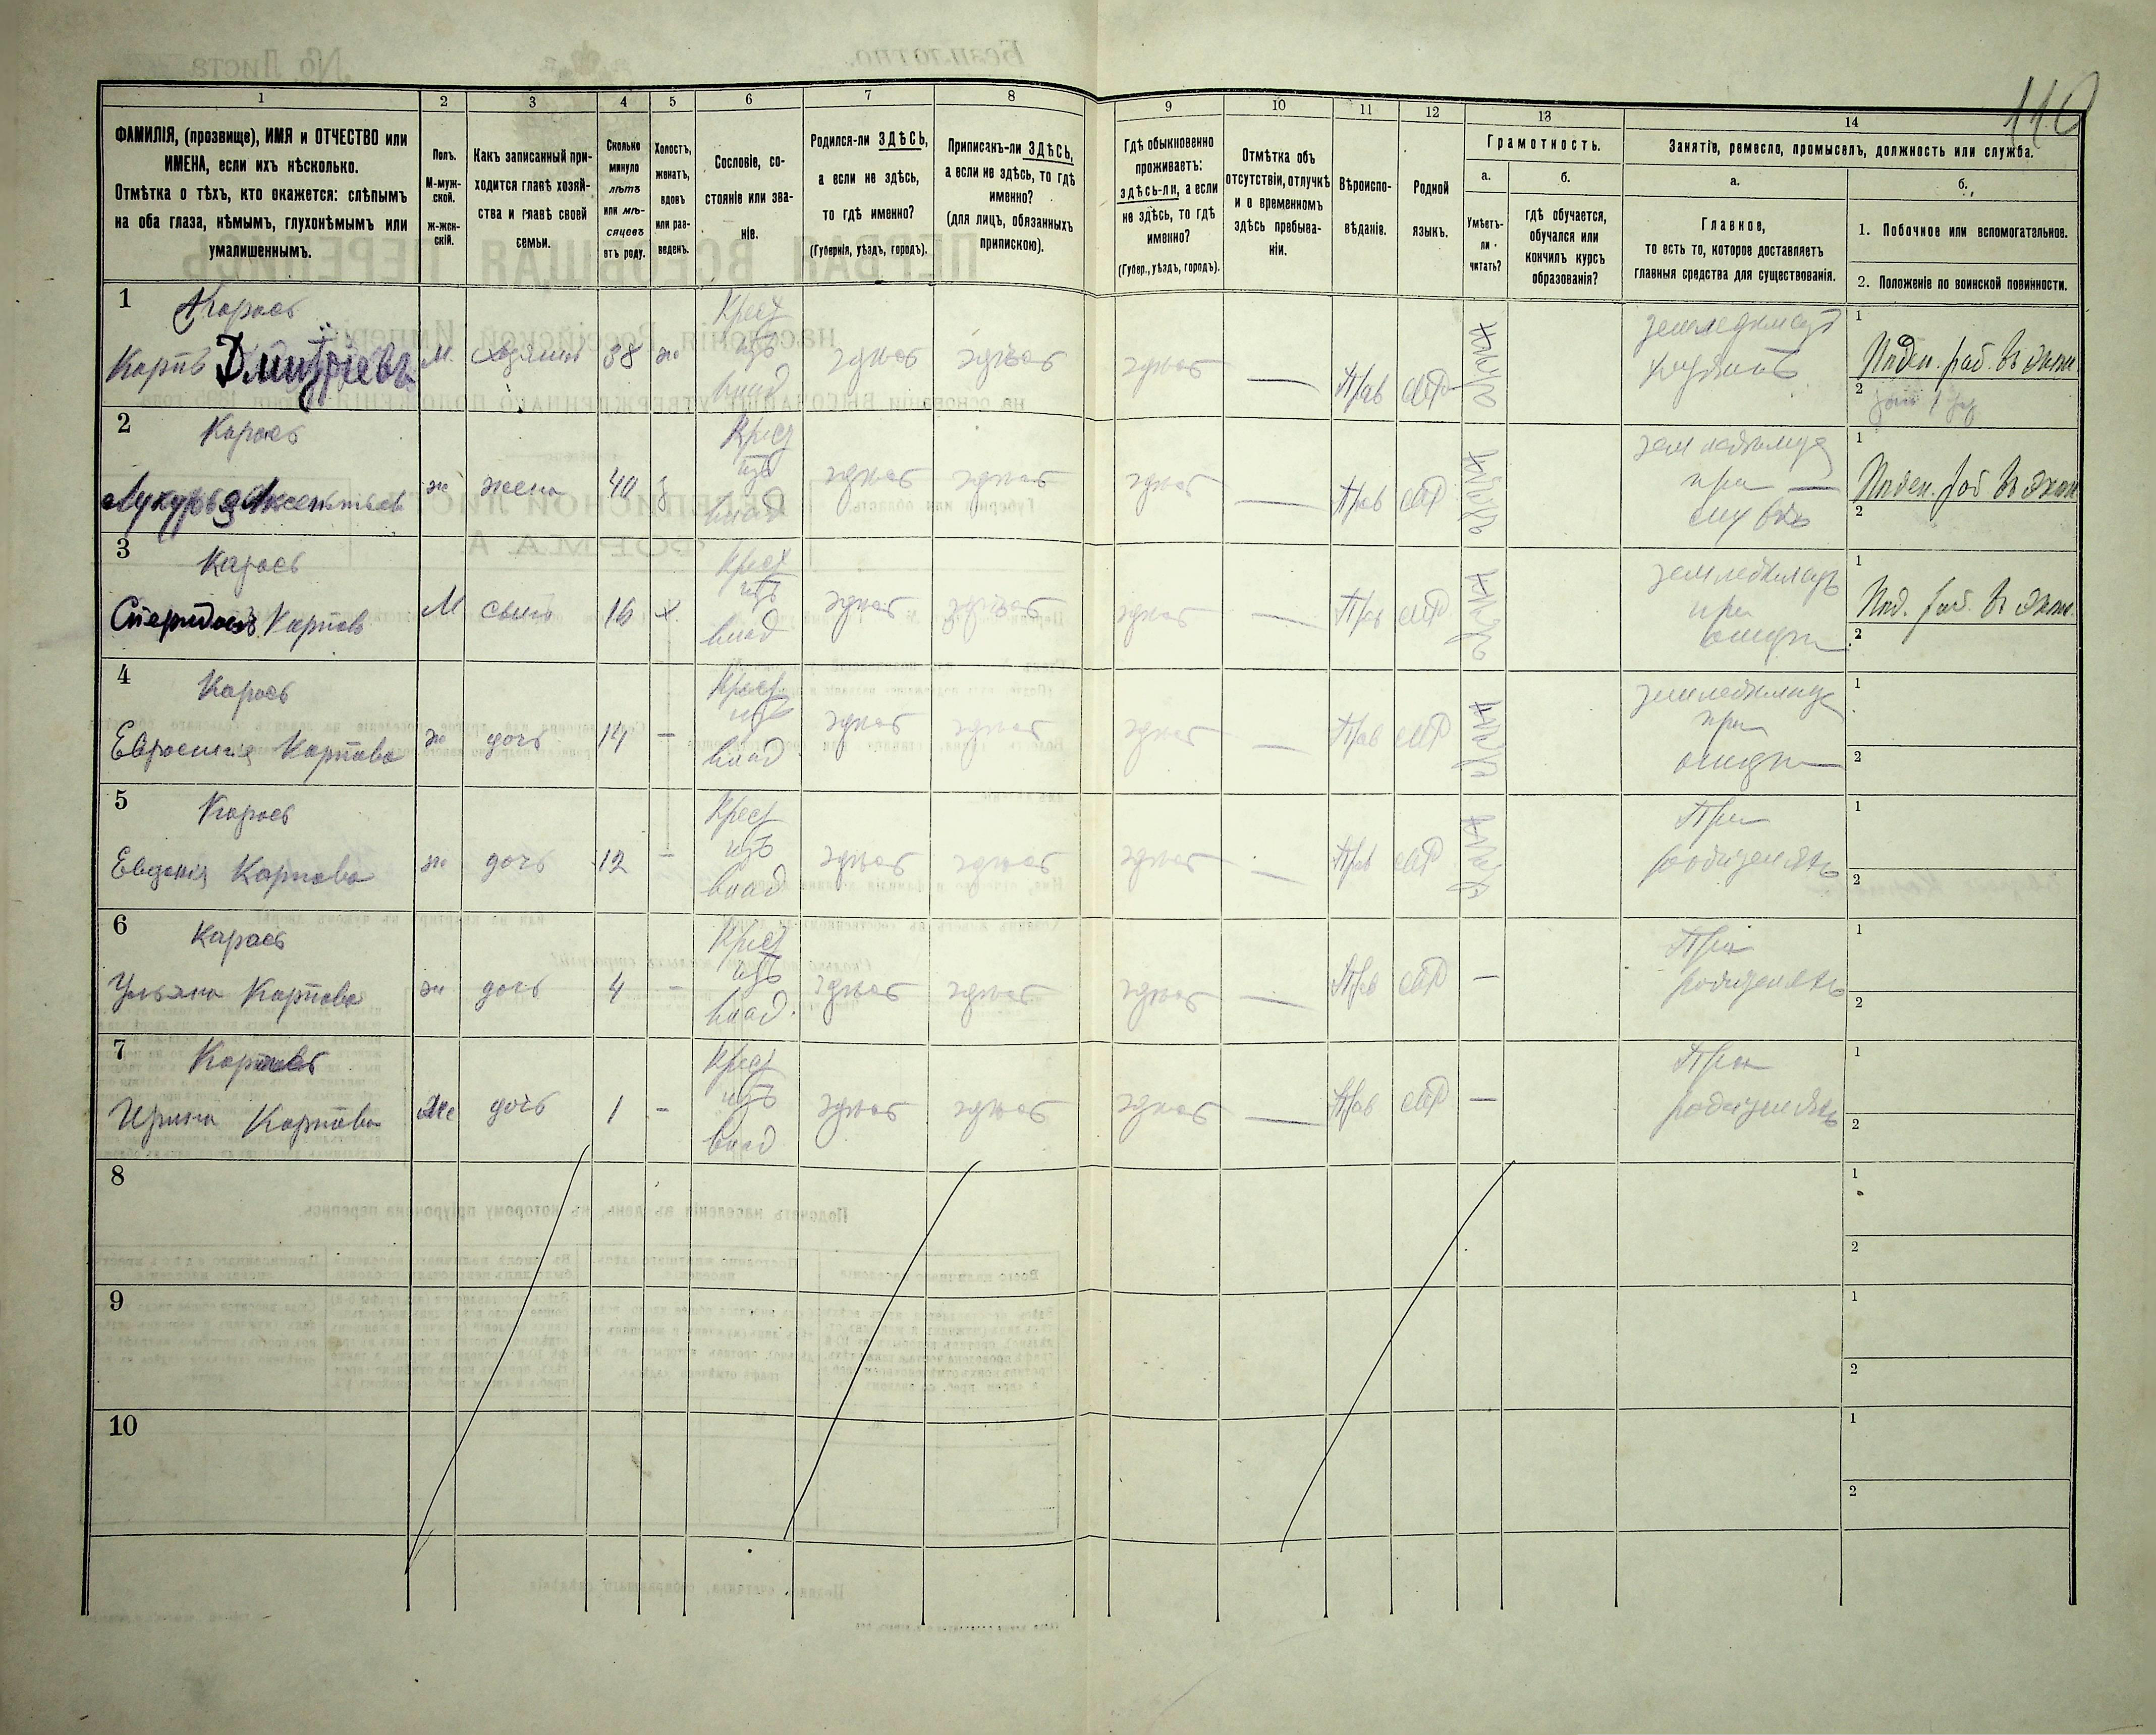 110
1
2
3
4
5
6
7
8
9
10
11
12
13
14
ФАМИЛІЯ, (прозвище), ИМЯ и ОТЧЕСТВО или
ИМЕНА, если ихъ нѣсколько.
Отмѣтка о тѣхъ, кто окажется: слѣпымъ
на оба глаза, нѣмымъ, глухонѣмымъ или
умалишеннымъ.
Полъ.
М-муж-
ской.
ж-жен-
скій.
Какъ записанный при-
ходится главѣ хозяй-
ства и главѣ своей
семьи.
Сколько
минуло
лѣтъ
или мѣ-
сяцевъ
отъ роду.
Холостъ,
женатъ,
вдовъ
или раз-
веденъ.
Сословіе, со-
стояніе или зва-
ніе.
Родился-ли ЗДѢСЬ,
а если не здѣсь,
то гдѣ именно?
(Губернія, уѣздъ, городъ).
Приписанъ-ли ЗДѢСЬ,
а если не здѣсь, то гдѣ
именно?
(для лицъ, обязанныхъ
припискою).
Гдѣ обыкновенно
проживаетъ:
здѣсь-ли, а если
не здѣсь, то гдѣ
именно?
(Губер., уѣздъ, городъ).
Отмѣтка объ
отсутствіи, отлучкѣ
и о временномъ
здѣсь пребыва-
ніи.
Вѣроиспо-
вѣданіе.
Родной
языкъ.
Грамотность.
а.
Умѣетъ-
ли
читать?
б.
гдѣ обучается,
обучался или
кончилъ курсъ
образованія?
Занятіе, ремесло, промыселъ, должность или служба.
а.
Главное,
то есть то, которое доставляетъ
главныя средства для существованія.
б.
1. Побочное или вспомогательное.
2. Положеніе по воинской повинности.
1
Карась
Карпъ Дмитріевъ
М.
хозяинъ
38
ж
Крест
изъ
влад
здѣсь
здѣсь
здѣсь
—
Прав
МР
1
Поден. раб. въ экон.
2
2
Карась
Лукурья Аксентьев
ж
жена
40
З
Крест
изъ
влад
здѣсь
здѣсь
здѣсь
—
Прав
МР
при
1
Поден. раб въ экон
2
3
Карась
Спиридонъ Карповъ
М
сынъ
16
х.
Крест
изъ
влад
здѣсь
здѣсь
здѣсь
—
Прав
МР
при
1
Под. раб. въ экон.
2
4
Карась
Евфросинія Карпова
ж
дочь
14
–
Крест
изъ
влад
здѣсь
здѣсь
здѣсь
—
Прав
МР
при
1
2
5
Карась
Евдокія Карпова
ж
дочь
12
–
Крест
изъ
влад
здѣсь
здѣсь
здѣсь
—
Прав
МР
При
родителяхъ
1
2
6
Карась
Ульяна Карпова
ж
дочь
4
–
Крест
изъ
влад.
здѣсь
здѣсь
здѣсь
—
Прав
МР
—
При
родителяхъ
1
2
7
Карась
Ирина Карпова
Же
дочь
1
–
Крест
изъ
влад
здѣсь
здѣсь
здѣсь
—
Прав
МР
—
При
родителяхъ
1
2
8
1
2
9
1
2
10
1
2